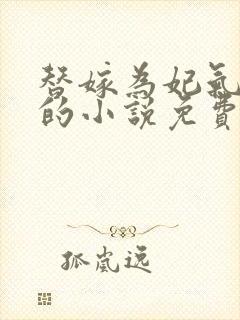 替嫁為妃氣
的小說免費
孤嵐遠